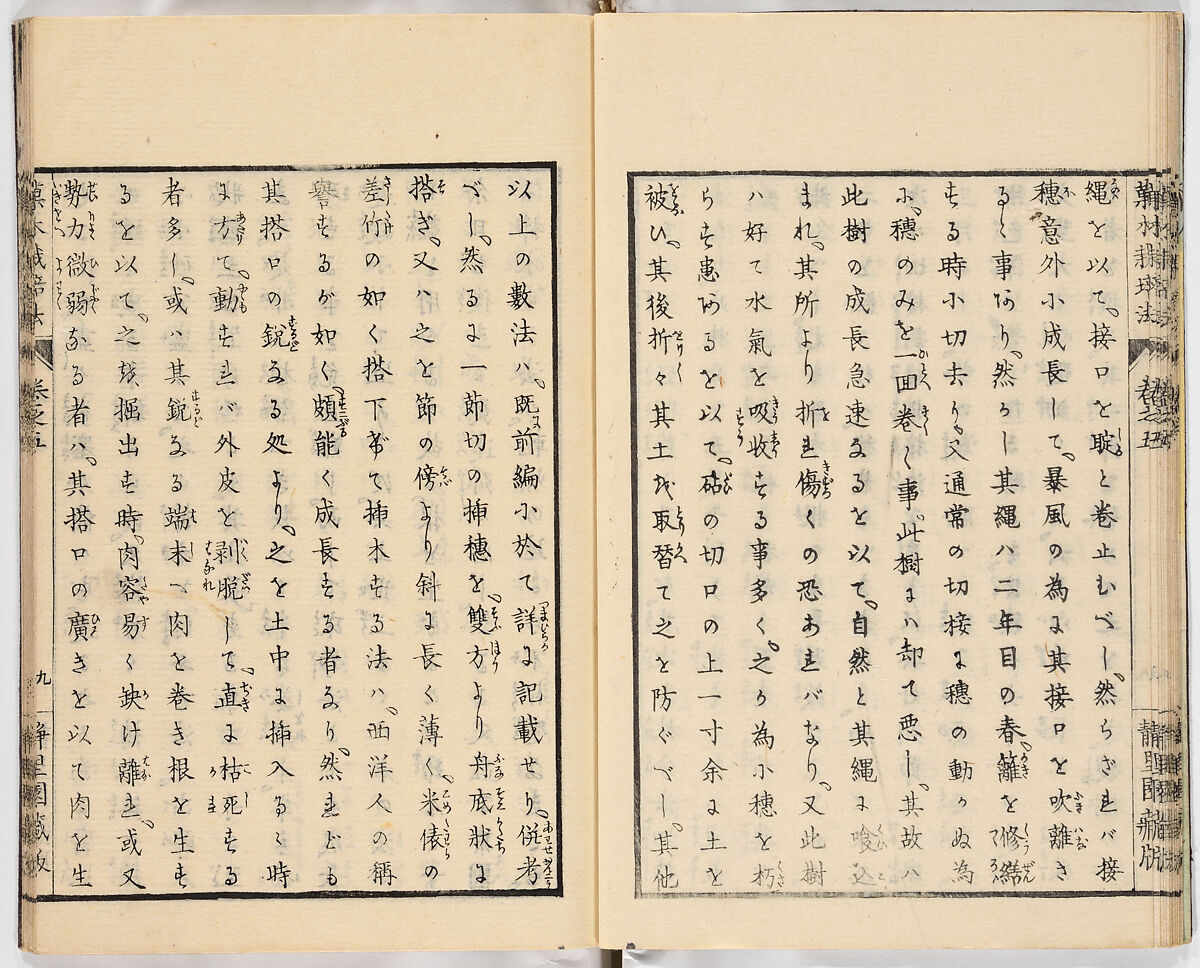 縄を以て、接口を聢と巻止むべし、然らざれバ接
穂意外小成長して、暴風の為に其接口を吹離さ
るゝ事あり、然かし其縄ハ二年目の春、籬を修繕
する時小切去り、又通常の切接に穂の動かぬ為
小、穂のみを一回巻く事、此樹にハ却て悪し、其故ハ
此樹の成長急速なるを以て、自然と其縄に喰込
まれ、其所より折れ傷くの恐あれバなり、又此樹
ハ好て水氣を吸收する事多く、之が為小穂を朽
らす患あるを以て、砧の切口の上一寸余に土を
被ひ、其後折々其土を取替て之を防ぐべし、其他
以上の數法ハ、既に前編小於て詳に記載せり、併考
べし、然るに一節切の挿穂を、雙方より舟底状に
搭ぎ、又ハ之を節の傍より斜に長く薄く、米俵の
差竹の如く搭下げて挿木する法ハ、西洋人の稱
譽するが如く、頗能く成長する者なり、然れども
其搭口の鋭なる処より、之を土中に挿入るゝ時
に方て、動すれバ外皮を剥脱して、直に枯死する
者多し、或ハ其鋭なる端末へ肉を巻き根を生す
るを以て、之を掘出す時、肉容易く缺け離れ、或又
勢力微弱なる者ハ、其搭口の廣きを以て肉を生
卷之五
九
静里園藏版